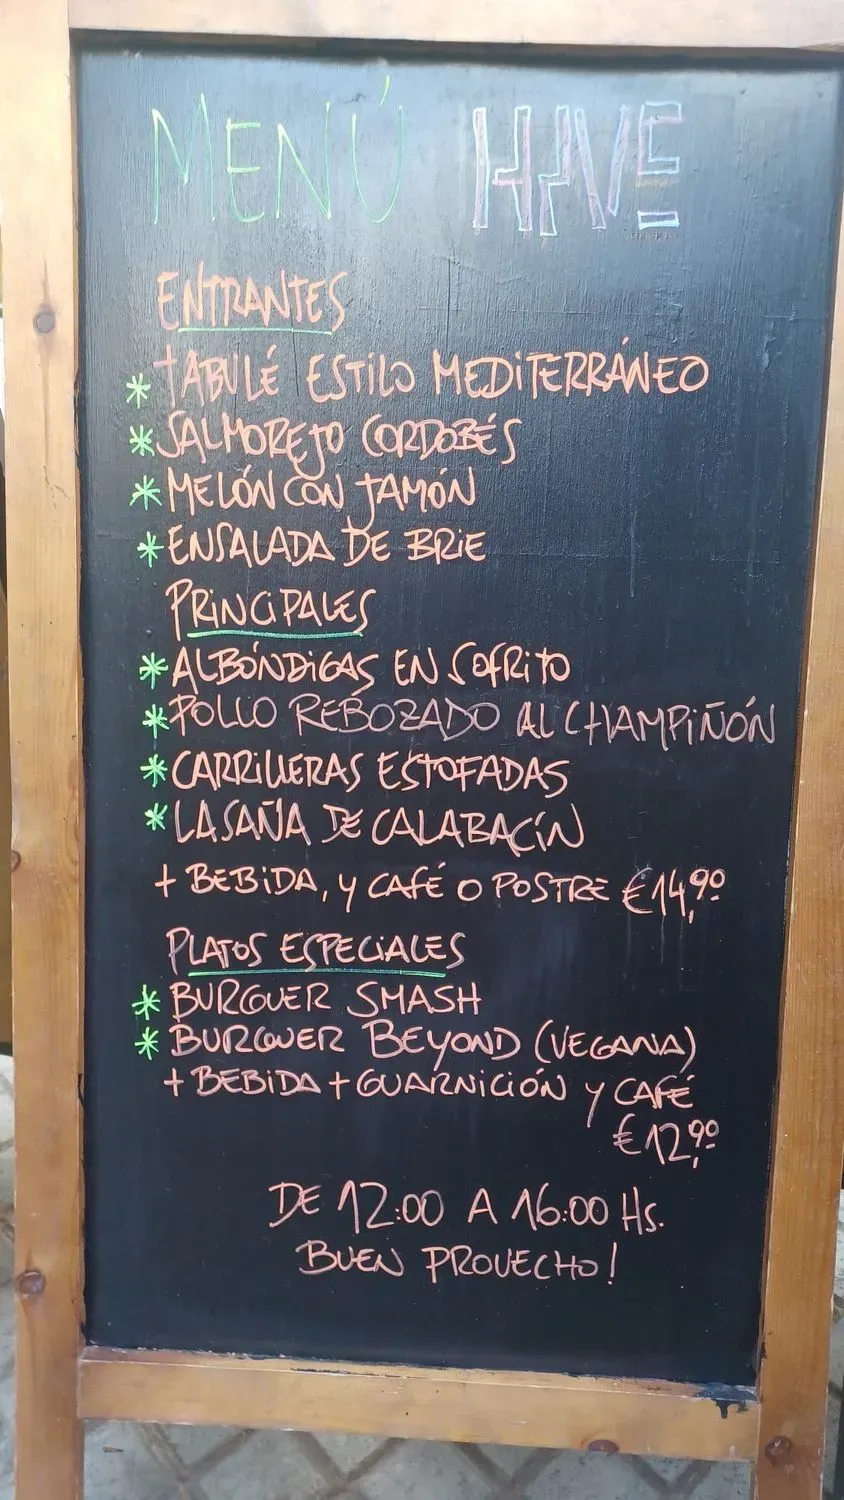 MENÚ HAVE
ENTRANTES
* TABULÉ ESTILO MEDITERRÁNEO
* SALMOREJO CORDOBÉS
* MELÓN CON JAMÓN
* ENSALADA DE BRIE
PRINCIPALES
* ALBÓNDIGAS EN SOFRITO
* POLLO REBOZADO AL CHAMPIÑÓN
* CARRILLERAS ESTOFADAS
* LASAÑA DE CALABACÍN
+ BEBIDA, Y CAFÉ O POSTRE €14,90
PLATOS ESPECIALES
* BURGUER SMASH
* BURGUER BEYOND (VEGANA)
+ BEBIDA + GUARNICIÓN Y CAFÉ
€12,90
DE 12:00 A 16:00 HS.
BUEN PROVECHO!